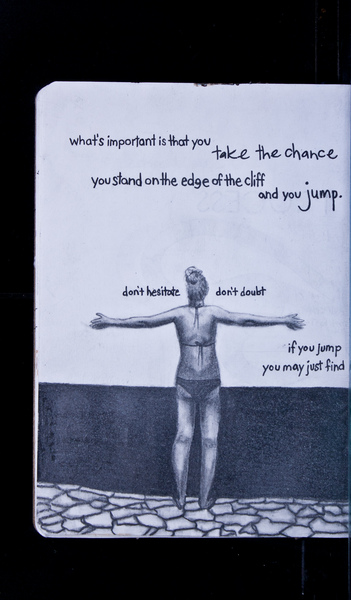 what's important is that you
take the chance
you stand on the edge of the cliff
and you jump.
don't hesitate don't doubt
if you jump
you may just find